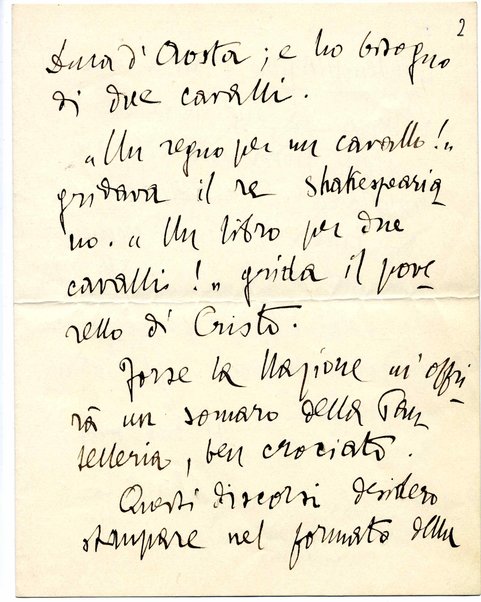 2
Duca d'Aosta; e ho bisogno
di due cavalli.
„Un regno per un cavallo!„
gridava il re shakespearia
no. „Un libro per due
cavalli!„ grida il pove
rello di Cristo.
Forse la Nazione m'offri
rà un somaro della Pan
telleria, ben crociato.
Questi discorsi desidero
stampare nel formato della